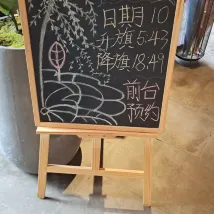 日期10
升旗5:43
降旗18:49
前台
预约